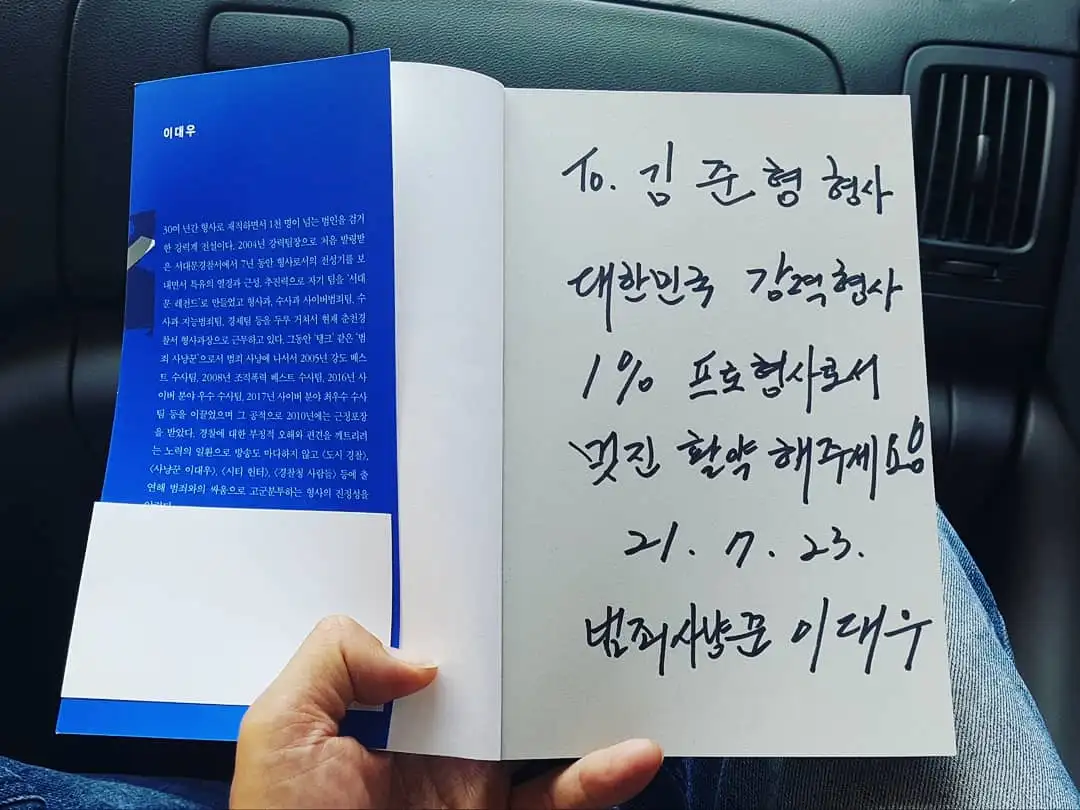 이대우
30여 년간 형사로 재직하면서 1천 명이 넘는 범인을 검거
한 강력계 전설이다. 2004년 강력팀장으로 처음 발령받
은 서대문경찰서에서 7년 동안 형사로서의 전성기를 보
내면서 특유의 열정과 근성, 추진력으로 자기 팀을 '서대
문 레전드'로 만들었고 형사과, 수사과 사이버범죄팀, 수
사과 지능범죄팀, 경제팀 등을 두루 거쳐서 현재 춘천경
찰서 형사과장으로 근무하고 있다. 그동안 '탱크' 같은 '범
죄 사냥꾼'으로서 범죄 사냥에 나서서 2005년 강도 베스
트 수사팀, 2008년 조직폭력 베스트 수사팀, 2016년 사
이버 분야 우수 수사팀, 2017년 사이버 분야 최우수 수사
팀 등을 이끌었으며 그 공적으로 2010년에는 근정포장
을 받았다. 경찰에 대한 부정적 오해와 편견을 깨트리려
는 노력의 일환으로 방송도 마다하지 않고 〈도시 경찰〉,
〈사냥꾼 이대우〉, 〈시티 헌터〉, 〈경찰청 사람들〉 등에 출
연해 범죄와의 싸움으로 고군분투하는 형사의 진정성을
To. 김준형 형사
대한민국 강력형사
1% 프로형사로서
멋진 활약 해주세요용
21. 7. 23.
범죄사냥꾼 이대우